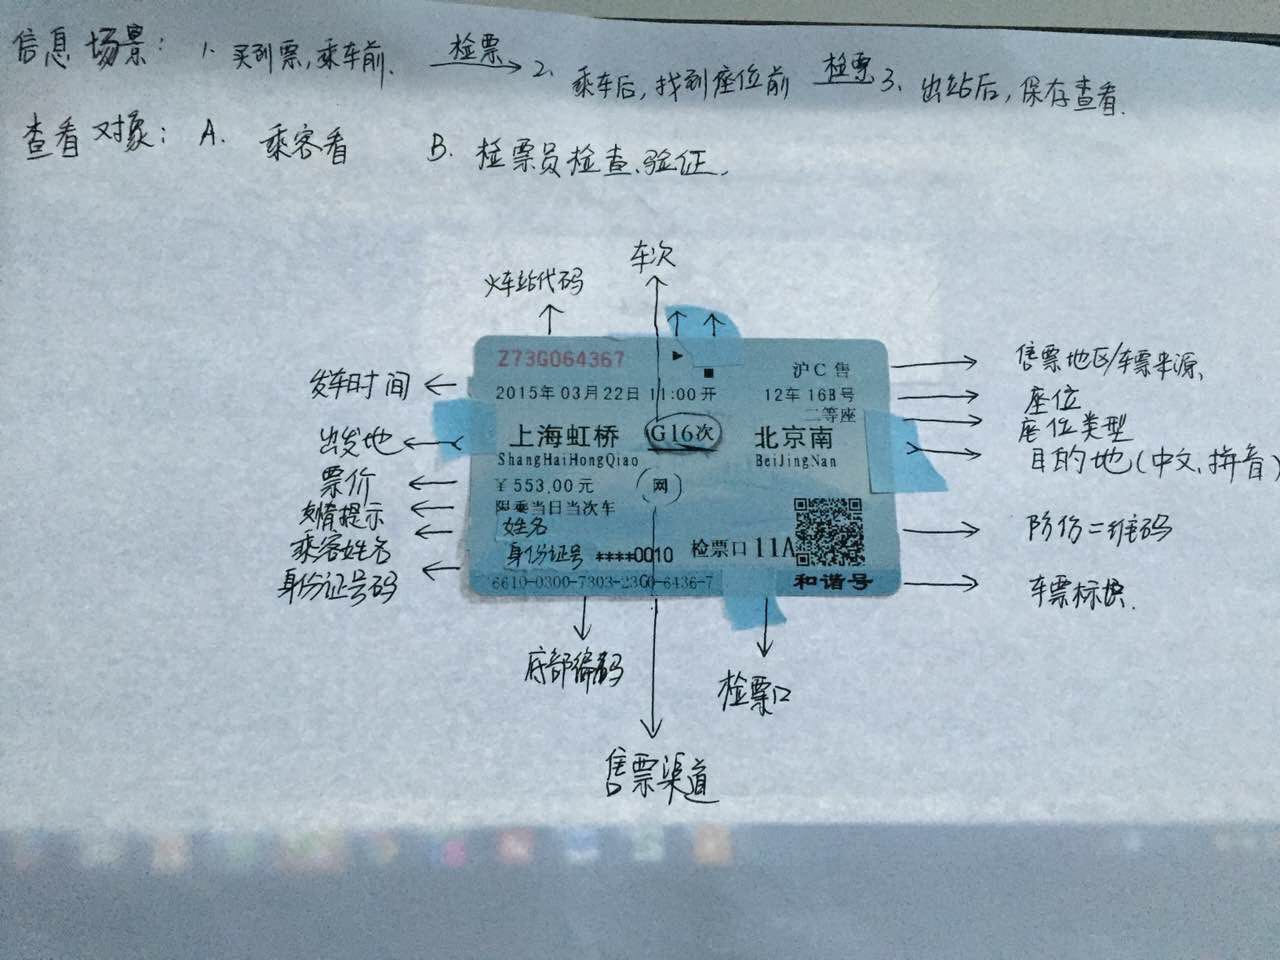 信息场景： 1. 买到票,乘车前. 检票 2、乘车后,找到座位前 检票 3、出站后,保存查看.
查看对象： A. 乘客看 B. 检票员检查、验证.
车次
火车站代码
Z73G064367
沪C售
售票地区/车票来源
发车时间
2015年03月22日 11:00开
12车 16B号
座位
二等座
座位类型
出发地
上海虹桥 G16次 北京南
目的地(中文、拼音)
ShangHaiHongQiao BeiJingNan
票价
￥553.00元 网
友情提示
限乘当日当次车
乘客姓名
姓名
身份证号 ****0010 检票口 11A
防伪二维码
身份证号码
6610-0300-7303-23G0-6436-7 和谐号
车票标识
底部编码
检票口
售票渠道